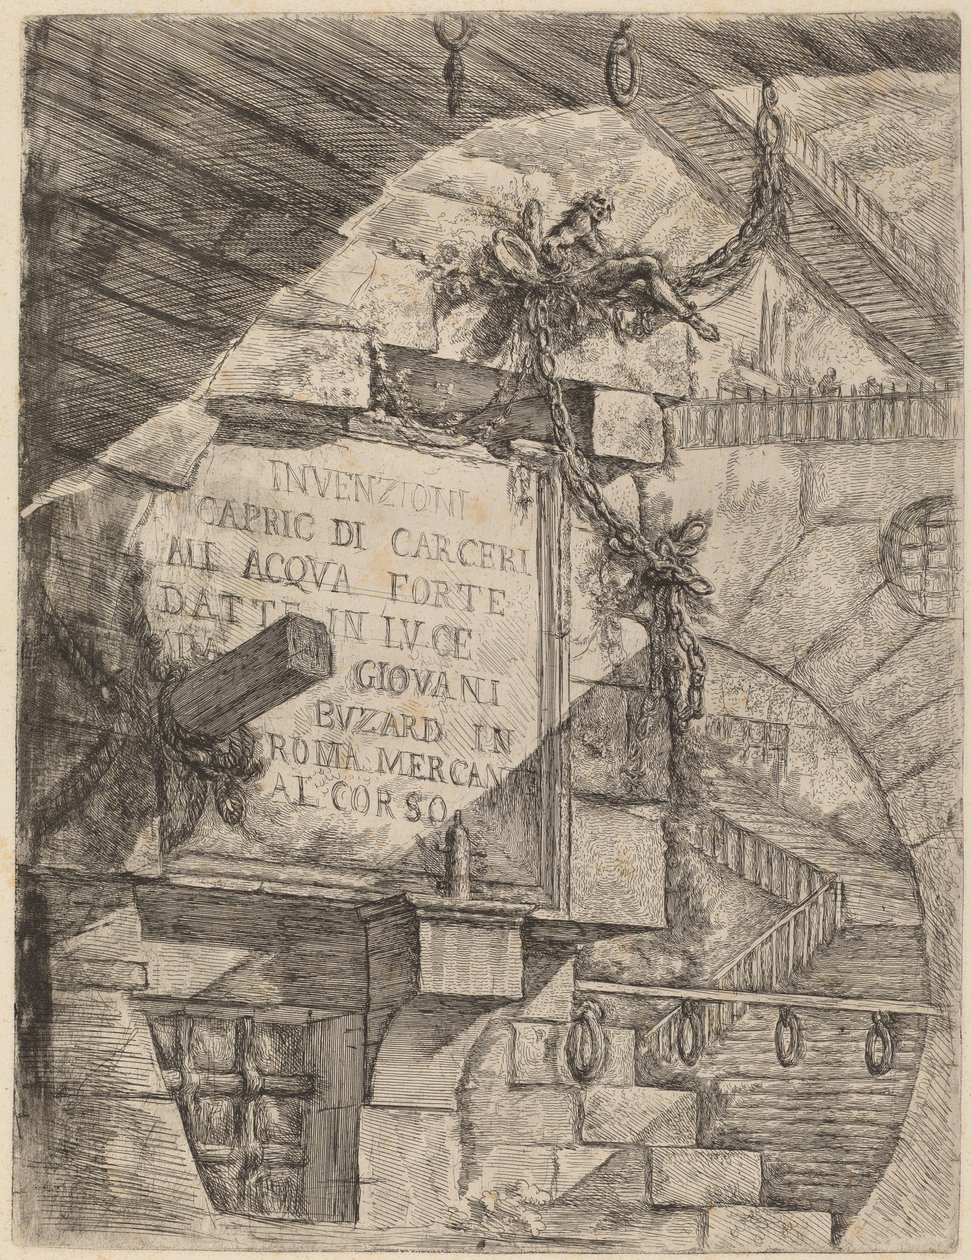 INVENZIONI
CAPRIC DI CARCERI
ALL ACQVA FORTE
DATTE IN LVCE
GIOVANI
BVZARD IN
ROMA MERCAN
AL CORSO